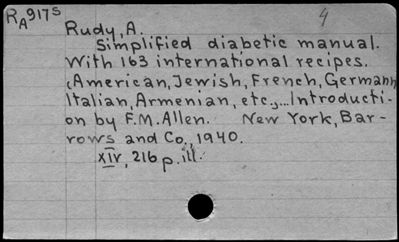 RA917S 4
Rudy, A.
Simplified diabetic manual.
With 163 international recipes.
(American, Jewish, French, German
Italian, Armenian, etc.,...Introducti-
on by F.M. Allen. New York, Bar-
rows and Co., 1940.
xiv, 216 p. ill.